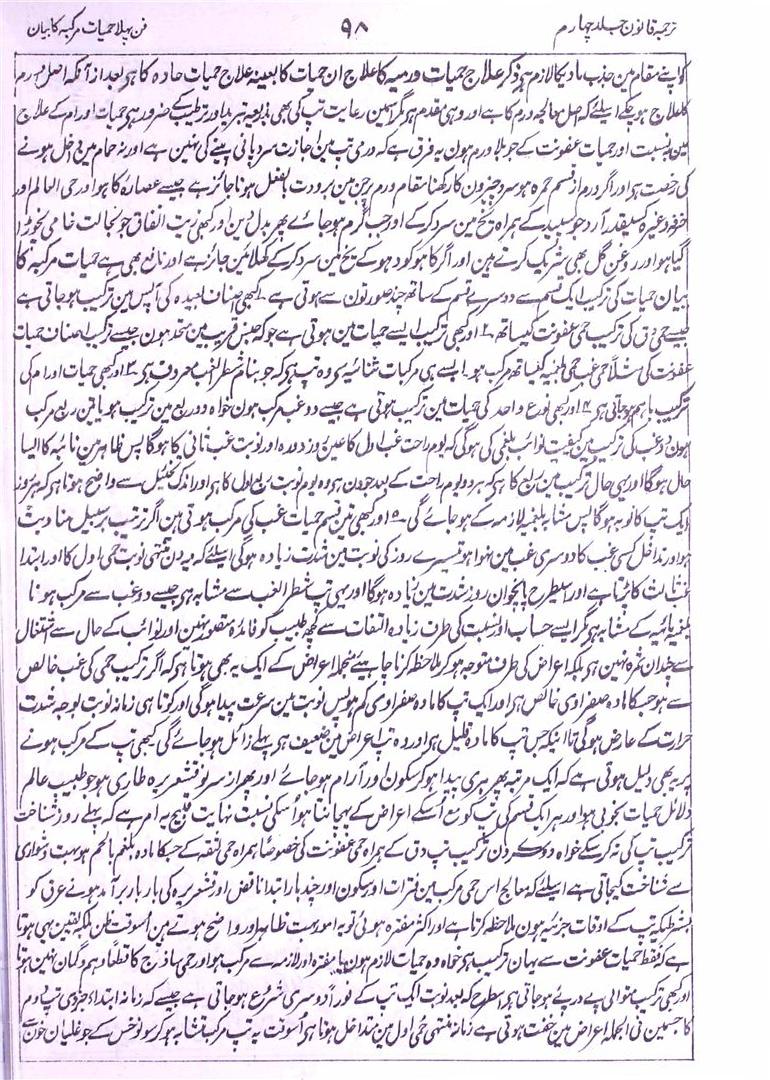 ترجمہ قانون جلد چہارم
۹۸
فن پہلا حمیات مرکبہ کا بیان
کو اپنے مقام مین جذب مادیکا لازم ہی ذکر علاج حمیات ورمیہ کا علاج ان حمیات کا بعینہ علاج حمیات حادہ کا ہی بعد از آنکہ اصل ورم
کا علاج ہو چکے اسلیے کہ اصل معالجہ ورم کا ہے اور وہی مقدم ہی مگر اسمین رعایت تپ کی بھی بذریعہ تبرید اور ترطیب کے ضرور ہی حمیات اورام کے علاج
مین بہ نسبت اور حمیات عفونت کے جو بلا ورم ہون یہ فرق ہے کہ ورمی تپ مین اجازت سرد پانی پینے کی نہین ہے اور نہ حمام مین داخل ہونے
کی رخصت ہی اور اگر ورم از قسم حمرہ ہو سرد چیزون کا رکھنا مقام ورم پر جن مین برودت بالفعل ہونا جائز ہے جیسے عصارہ کاہو اور حی العالم اور
خرفہ وغیرہ کسیقدر آرد جو سپید کے ہمراہ یخ مین سرد کر کے اور جب گرم ہو جائے پھر بدل دین اور کبھی زیت انفاق جو بحالت خامی نچوڑا
گیا ہو اور روغن گل بھی شریک کرتے ہین اور اگر کاہو کو دہو کے یخ مین سرد کر کے کھلائین جائز ہے اور نافع بھی ہے حمیات مرکبہ کا
بیان حمیات کی ترکیب ایک قسم سے دوسرے قسم کے ساتھ چند صورتون سے ہوتی ہے کبھی اصناف بعیدہ کی آپس مین ترکیب ہو جاتی ہے
جیسے حمی دق کی ترکیب حمی عفونت کیساتھ ۲ اور کبھی ترکیب ایسے حمیات مین ہوتی ہے جو کہ جنس قریب مین متحد ہون جیسے ترکیب اصناف حمیات
عفونت کی مثلاً حمی غب حمی بلغمیہ کیساتھ مرکب ہو ایسے ہی مرکبات ثنائیہ سے وہ تپ ہی کہ جو بنام شطر الغب معروف ہی ۳ اور کبھی حمیات اورام کی
ترکیب باہم ہو جاتی ہی ۴ اور کبھی نوع واحد کی حمیات مین ترکیب ہوتی ہے جیسے دو غب مرکب ہون خواہ دو ربع مین ترکیب ہو یا تین ربع مرکب
ہون دو غب کی ترکیب مین کیفیت نوائب بلغمی کی ہوگی کہ یوم راحت غب اول کا عین روز دورہ اور نوبت غب ثانی کا ہوگا پس ظاہر مین نائبہ کا ایسا
حال ہوگا اور یہی حال ترکیب تین ربع کا ہے کہ ہر دو یوم راحت کے بعد جو دن ہی وہ یوم نوبت ربع اول کا ہی اور اندک تخیل سے واضح ہوتا ہی کہ ہر روز
ایک تپ کا نوبہ ہوگا پس مشابہ بلغمیہ لازمہ کے ہو جائے گی ۵ اور کبھی تین قسم حمیات غب کی مرکب ہوتی ہین اگر ترتیب بر سبیل مناوبت
ہو اور تداخل کسی غب کا دوسری غب مین نہوا ہو تیسرے روز کی نوبت مین شدت زیادہ ہوگی اسلیے کہ یہ دن منتہی نوبت حمی اول کا اور ابتدا
غب ثالث کا پڑتا ہے اور اسیطرح پانچوان روز شدت مین زیادہ ہوگا اور یہی تپ شطر الغب سے مشابہ ہی جیسے دو غب سے مرکب ہونا
بلغمیہ نائبہ کے مشابہ ہی مگر ایسے حساب اور نسبت کی طرف زیادہ التفات سے کچھ طبیب کو فائدہ متصور نہین اور نوائب کے حال سے اشتغال
سے چندان ثمرہ نہین ہی بلکہ اعراض کی طرف متوجہ ہو کر ملاحظہ کرنا چاہیے منجملہ اعراض کے ایک یہ بھی ہوتا ہی کہ اگر ترکیب حمی کی غب خالص
سے ہو جسکا مادہ صفراوی خالص ہی اور ایک تپ کا مادہ صفراوی کم ہو پس نوبت مین سرعت پیدا ہوگی اور کوتاہی زمانہ نوبت بوجہ شدت
حرارت کے عارض ہوگی تا اینکہ جس تپ کا مادہ قلیل ہی اور وہ تپ اعراض مین ضعیف ہی پہلے زائل ہو جائے گی کبھی تپ کے مرکب ہونے
پر یہ بھی دلیل ہوتی ہے کہ ایک مرتبہ پھر ہری پیدا ہو کر سکون اور آرام ہو جائے اور پھر از سر نو قشعریرہ طاری ہو جو طبیب عالم
دلائل حمیات بخوبی ہو اور ہر ایک قسم کی تپ کو مع اسکے اعراض کے پہچانتا ہو اسکی نسبت نہایت قبیح یہ امر ہے کہ پہلے روز شناخت
ترکیب تپ کی نہ کر سکے خواہ دوسرے دن ترکیب تپ دق کے ہمراہ حمی عفونت کی خصوصاً ہمراہ حمی لثقہ کے جسکا مادہ بلغم یا لحم ہو بہت دشواری
سے شناخت کیجاتی ہے اسلیے کہ معالج اس حمی مرکب مین فترات اور سکون اور چند بار ابتدا نافض اور قشعریرہ کی بار بار بر آمد ہونے عرق کو
بشرطیکہ تپ کے اوقات جزئیہ ہون ملاحظہ کرتا ہے اور اکثر مفترہ ہوئی تو یہ امور بہت ظاہر اور واضح ہوتے ہین اسوقت ظن بلکہ یقین یہی ہوتا
ہے کہ فقط حمیات عفونت سے یہان ترکیب ہی خواہ وہ حمیات لازم ہون یا مفترہ اور لازمہ سے مرکب ہو اور حمی سازج کا قطعاً وہم و گمان نہین ہوتا
اور کبھی ترکیب متوالی پے درپے ہو جاتی ہی اسطرح کہ بعد نوبت ایک تپ کے فوراً دوسری شروع ہو جاتی ہے جیسے کہ زمانہ ابتدا جزوی تپ دوم
کا جسمین فی الجملہ اعراض مین خفت ہوتی ہے زمانہ منتہی حمی اول مین متداخل ہوتا ہی اسوقت یہ تپ مرکب مشابہ ہو کر سونوخس کے جو غلیان خون سے